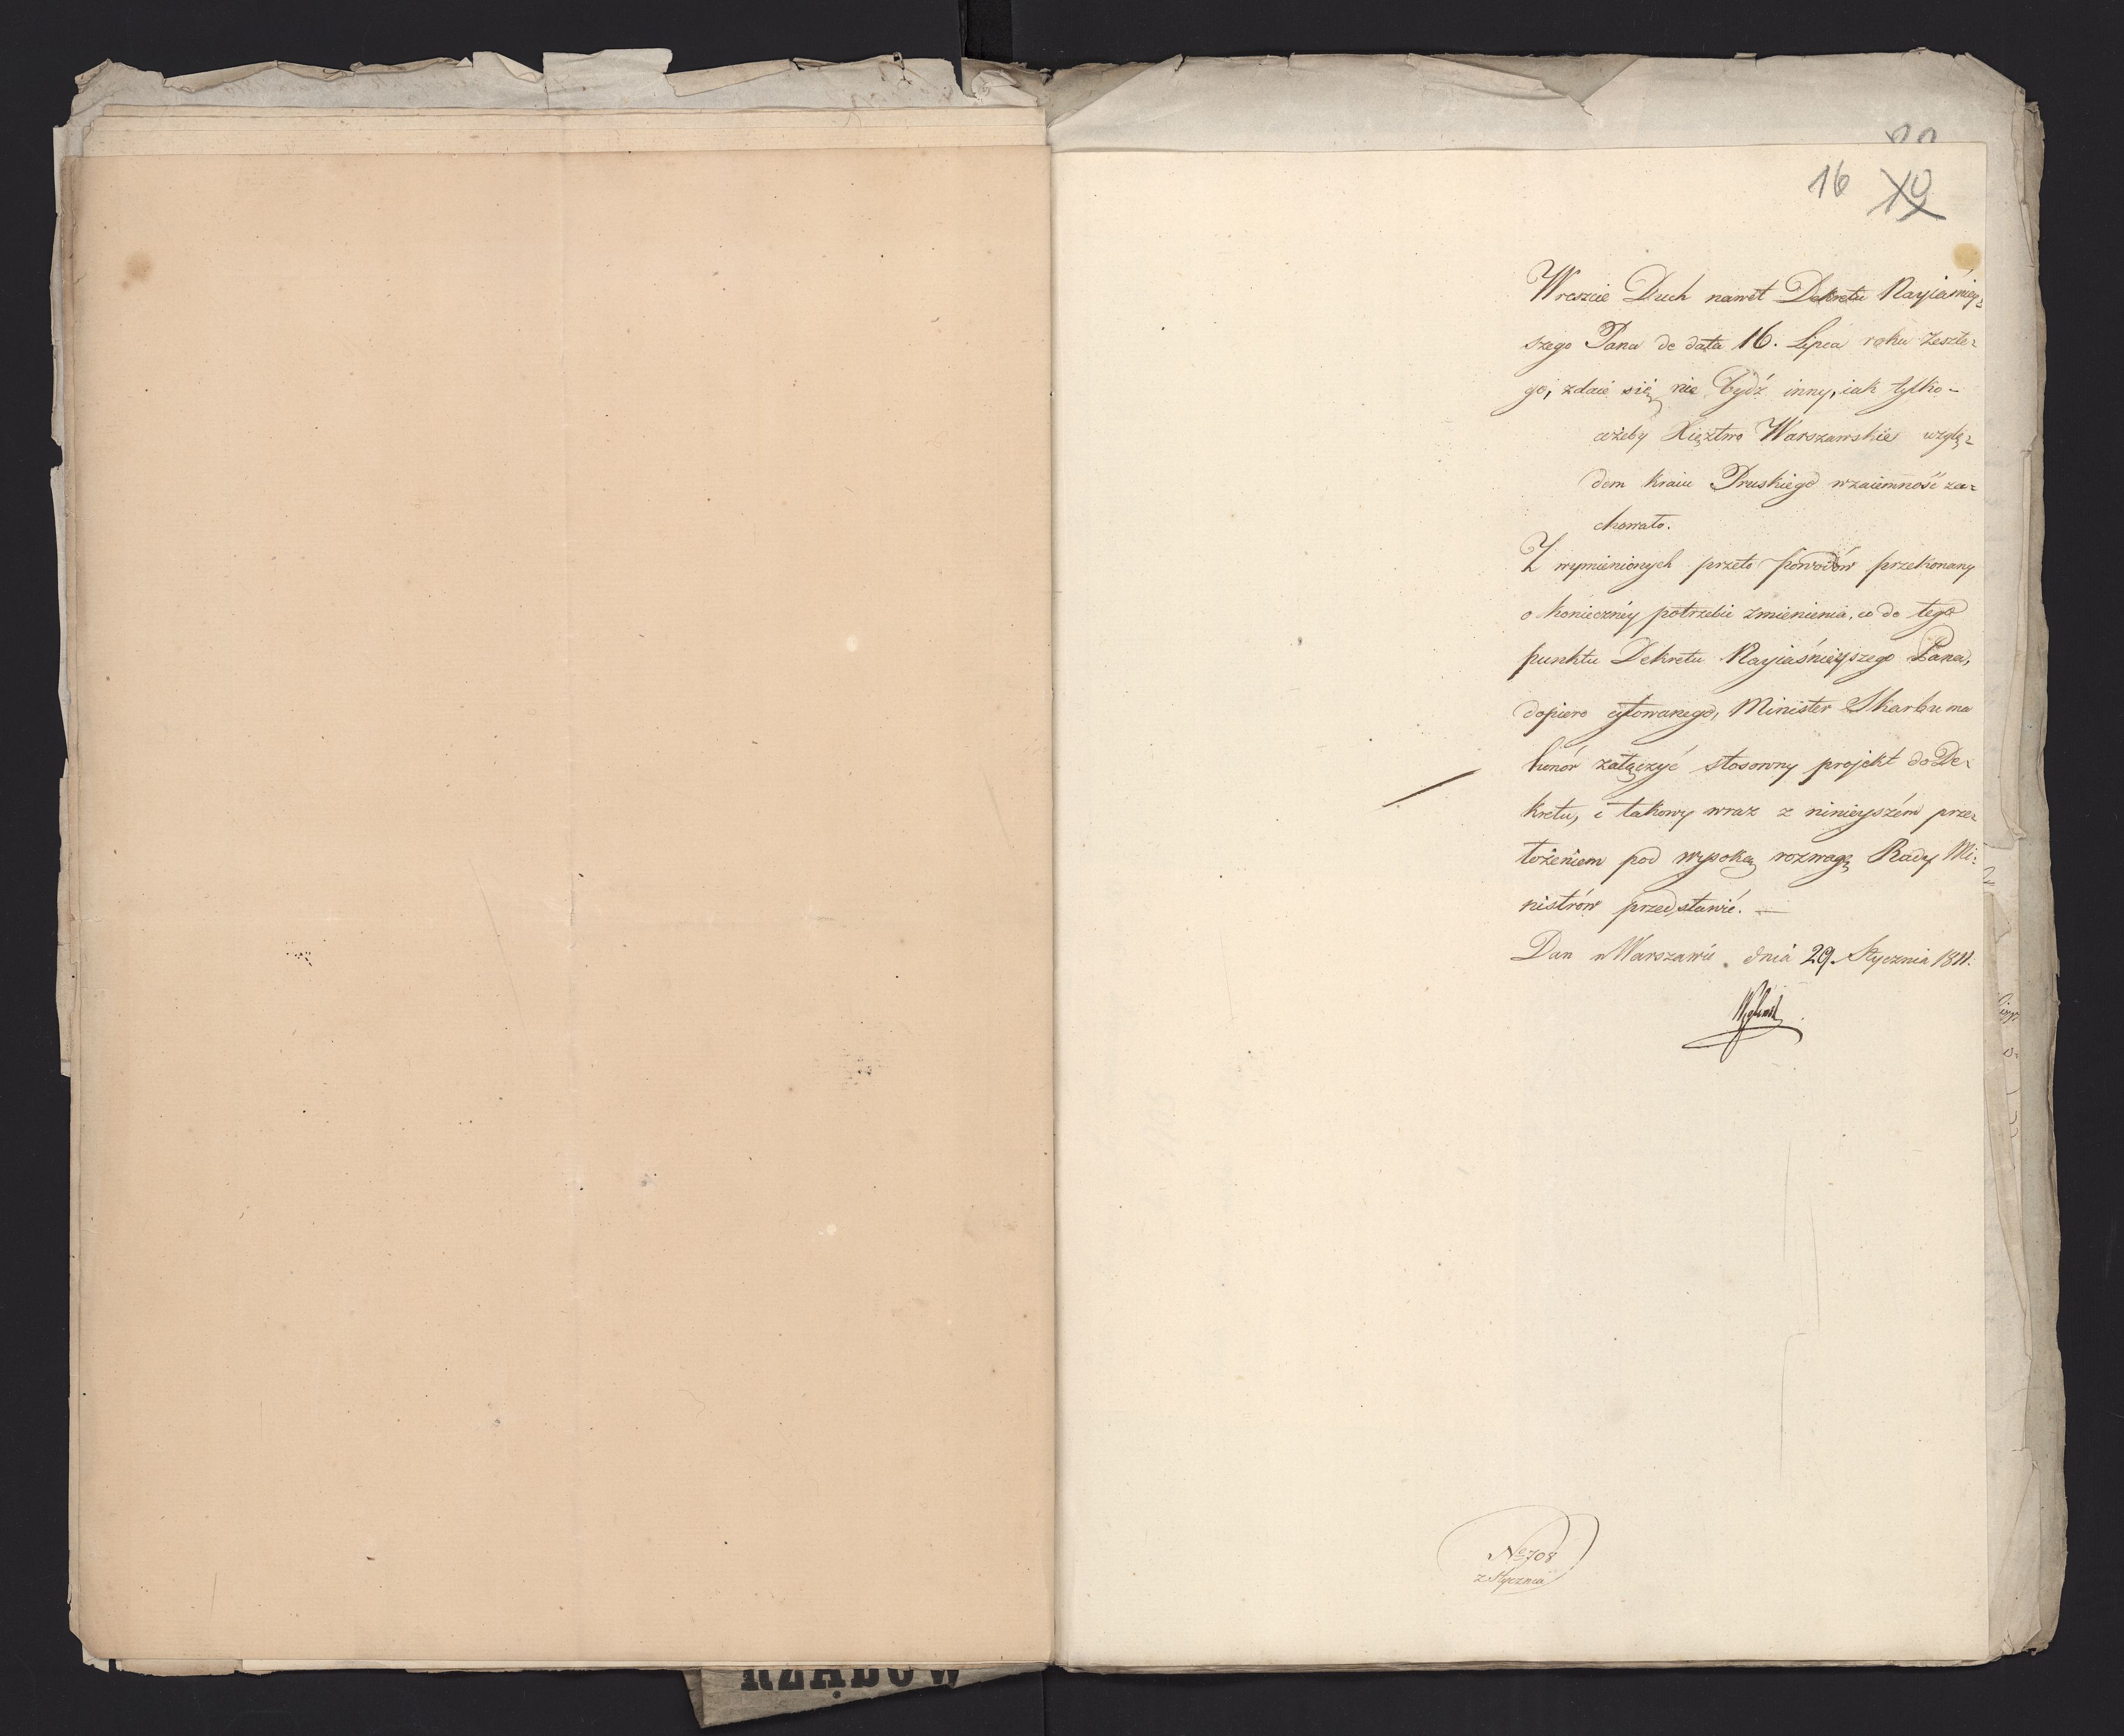 16
Wreszcie Duch nawet Dekretu Nayiaśniey=
szego Pana de data 16. Lipca roku zeszłe=
go, zdaie się nie bydź inny, iak tylko -
ażeby Xięztwo Warszawskie wzglę=
dem kraiu Pruskiego wzaiemność za=
chowało.
Z wymienionych przeto powodów przekonany
o konieczney potrzebie zmienienia, co do tego
punktu Dekretu Nayiaśnieyszego Pana,
dopiero cytowanego, Minister Skarbu ma
honór załączyć stosowny projekt do De=
kretu, i takowy wraz z ninieyszém prze=
łożeniem pod wysoką rozwagę Rady Mi=
nistrów przedstawić. —
Dan w Warszawie dnia 29. Stycznia 1811.
Węgleński
No 708
z Stycznia
RZĄDOW